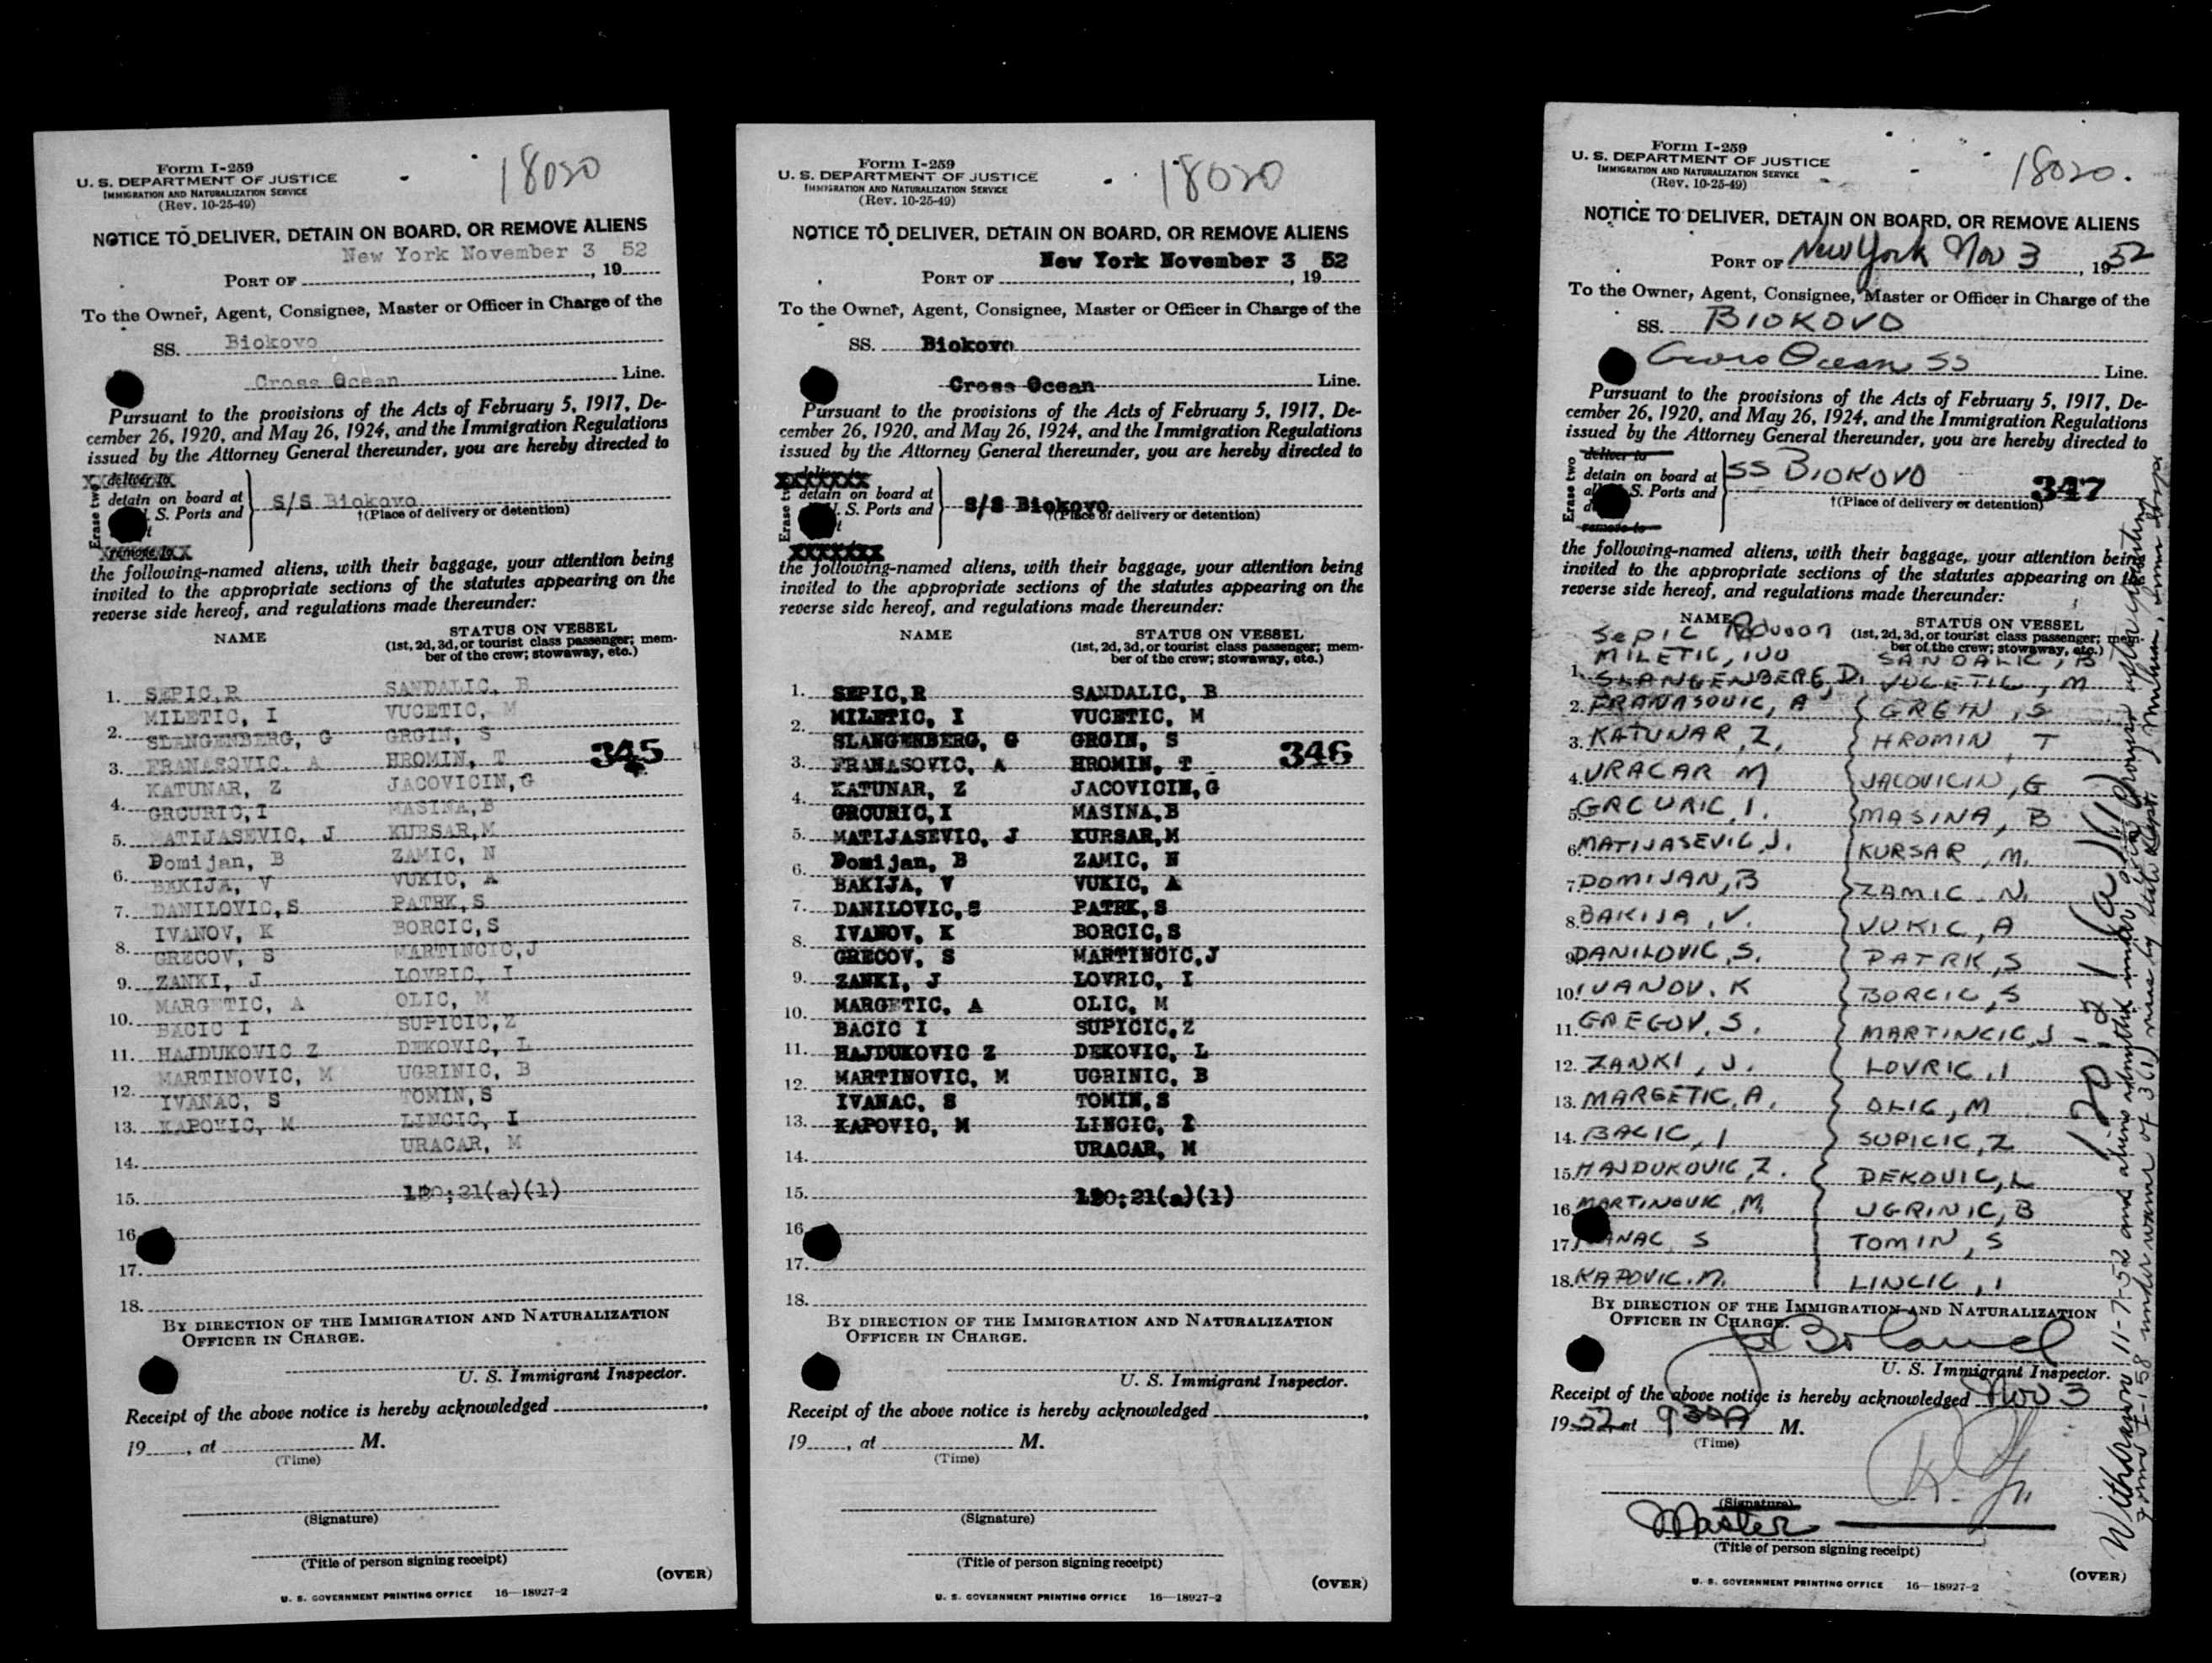 Form I-259
U. S. DEPARTMENT OF JUSTICE
IMMIGRATION AND NATURALIZATION SERVICE
(Rev. 10-25-49)
18020
NOTICE TO DELIVER, DETAIN ON BOARD, OR REMOVE ALIENS
New York November 3 52
PORT OF , 19
To the Owner, Agent, Consignee, Master or Officer in Charge of the
SS. Biokovo
Cross Ocean Line.
Pursuant to the provisions of the Acts of February 5, 1917, De-
cember 26, 1920, and May 26, 1924, and the Immigration Regulations
issued by the Attorney General thereunder, you are hereby directed to
Erase two
deliver to
detain on board at
S. Ports and
remove to
S/S Biokovo
†(Place of delivery or detention)
the following-named aliens, with their baggage, your attention being
invited to the appropriate sections of the statutes appearing on the
reverse side hereof, and regulations made thereunder:
NAME STATUS ON VESSEL
(1st, 2d, 3d, or tourist class passenger; mem-
ber of the crew; stowaway, etc.)
1. SEPIC,R SANDALIC, B
MILETIC, I VUCETIC, M
2. SLANGENBERG, G GRGIN, S
345
3. FRANASOVIC, A HROMIN, T
KATUNAR, Z JACOVICIN,G
4. GRCURIC,I MASINA,B
5. MATIJASEVIC, J KURSAR,M
Domijan, B ZAMIC, N
6. BAKIJA, V VUKIC, A
7. DANILOVIC,S PATRK,S
IVANOV, K BORCIC,S
8. GRECOV, S MARTINCIC,J
9. ZANKI, J LOVRIC, I
MARGETIC, A OLIC, M
10. BACIC I SUPICIC,Z
11. HAJDUKOVIC Z DEKOVIC, L
MARTINOVIC, M UGRINIC, B
12. IVANAC, S TOMIN,S
13. KAPOVIC, M LINCIC, I
URACAR, M
14.
15. 120;21(a)(1)
16.
17.
18.
BY DIRECTION OF THE IMMIGRATION AND NATURALIZATION
OFFICER IN CHARGE.
U. S. Immigrant Inspector.
Receipt of the above notice is hereby acknowledged
19 , at M.
(Time)
(Signature)
(Title of person signing receipt)
(OVER)
U. S. GOVERNMENT PRINTING OFFICE 16—18927-2
Form I-259
U. S. DEPARTMENT OF JUSTICE
IMMIGRATION AND NATURALIZATION SERVICE
(Rev. 10-25-49)
18020
NOTICE TO DELIVER, DETAIN ON BOARD, OR REMOVE ALIENS
New York November 3 52
PORT OF , 19
To the Owner, Agent, Consignee, Master or Officer in Charge of the
SS. Biokovo
Cross Ocean Line.
Pursuant to the provisions of the Acts of February 5, 1917, De-
cember 26, 1920, and May 26, 1924, and the Immigration Regulations
issued by the Attorney General thereunder, you are hereby directed to
deliver to
detain on board at
S. Ports and
S/S Biokovo
†(Place of delivery or detention)
the following-named aliens, with their baggage, your attention being
invited to the appropriate sections of the statutes appearing on the
reverse side hereof, and regulations made thereunder:
NAME STATUS ON VESSEL
(1st, 2d, 3d, or tourist class passenger; mem-
ber of the crew; stowaway, etc.)
1. SEPIC,R SANDALIC, B
MILETIC, I VUCETIC, M
2. SLANGENBERG, G GRGIN, S
346
3. FRANASOVIC, A HROMIN, T
KATUNAR, Z JACOVICIN,G
4. GRCURIC,I MASINA,B
5. MATIJASEVIC, J KURSAR,M
Domijan, B ZAMIC, N
6. BAKIJA, V VUKIC, A
7. DANILOVIC,S PATRK,S
IVANOV, K BORCIC,S
8. GRECOV, S MARTINCIC,J
9. ZANKI, J LOVRIC, I
MARGETIC, A OLIC, M
10. BACIC I SUPICIC,Z
11. HAJDUKOVIC Z DEKOVIC, L
12. MARTINOVIC, M UGRINIC, B
IVANAC, S TOMIN,S
13. KAPOVIC, M LINCIC, I
14. URACAR, M
15. 120;21(a)(1)
16.
17.
18.
BY DIRECTION OF THE IMMIGRATION AND NATURALIZATION
OFFICER IN CHARGE.
U. S. Immigrant Inspector.
Receipt of the above notice is hereby acknowledged
19 , at M.
(Time)
(Signature)
(Title of person signing receipt)
(OVER)
U. S. GOVERNMENT PRINTING OFFICE 16—18927-2
Form I-259
U. S. DEPARTMENT OF JUSTICE
IMMIGRATION AND NATURALIZATION SERVICE
(Rev. 10-25-49)
18020.
NOTICE TO DELIVER, DETAIN ON BOARD, OR REMOVE ALIENS
PORT OF New York Nov 3, 1952
To the Owner, Agent, Consignee, Master or Officer in Charge of the
SS. BIOKOVO
Ocean SS Line.
Pursuant to the provisions of the Acts of February 5, 1917, De-
cember 26, 1920, and May 26, 1924, and the Immigration Regulations
issued by the Attorney General thereunder, you are hereby directed to
Erase two
deliver to
detain on board at
S. Ports and
remove to
SS BIOKOVO
347
†(Place of delivery or detention)
the following-named aliens, with their baggage, your attention being
invited to the appropriate sections of the statutes appearing on the
reverse side hereof, and regulations made thereunder:
NAME STATUS ON VESSEL
SEPIC (1st, 2d, 3d, or tourist class passenger; mem-
ber of the crew; stowaway, etc.)
MILETIC, IVO SANDALIC, B
1. SLANGENBERG, D. VUCETIC, M
2. FRANASOVIC, A GRGIN, S
3. KATUNAR, Z, HROMIN, T
4. URACAR M JACOVICIN, G
5. GRCURIC, I. MASINA, B
6. MATIJASEVIC, J. KURSAR, M.
7. DOMIJAN, B ZAMIC. N.
8. BAKIJA, V. VUKIC, A
9. DANILOVIC, S. PATRK, S
10. IVANOV. K BORCIC, S
11. GREGOV. S. MARTINCIC, J
12. ZANKI, J. LOVRIC, I
13. MARGETIC, A. OLIC, M
14. BACIC, I SUPICIC, Z
15. HAJDUKOVIC, Z. DEKOVIC, L
16. MARTINOVIC, M. UGRINIC, B
17. IVANAC S TOMIN, S
18. KAPOVIC. M. LINCIC, I
BY DIRECTION OF THE IMMIGRATION AND NATURALIZATION
OFFICER IN CHARGE.
Boland
U. S. Immigrant Inspector.
Receipt of the above notice is hereby acknowledged Nov 3
1952 at 930A M.
(Time)
(Signature)
Master
(Title of person signing receipt)
(OVER)
U. S. GOVERNMENT PRINTING OFFICE 16—18927-2
Withdrawn 11-7-52 and aliens
Form I-158 under